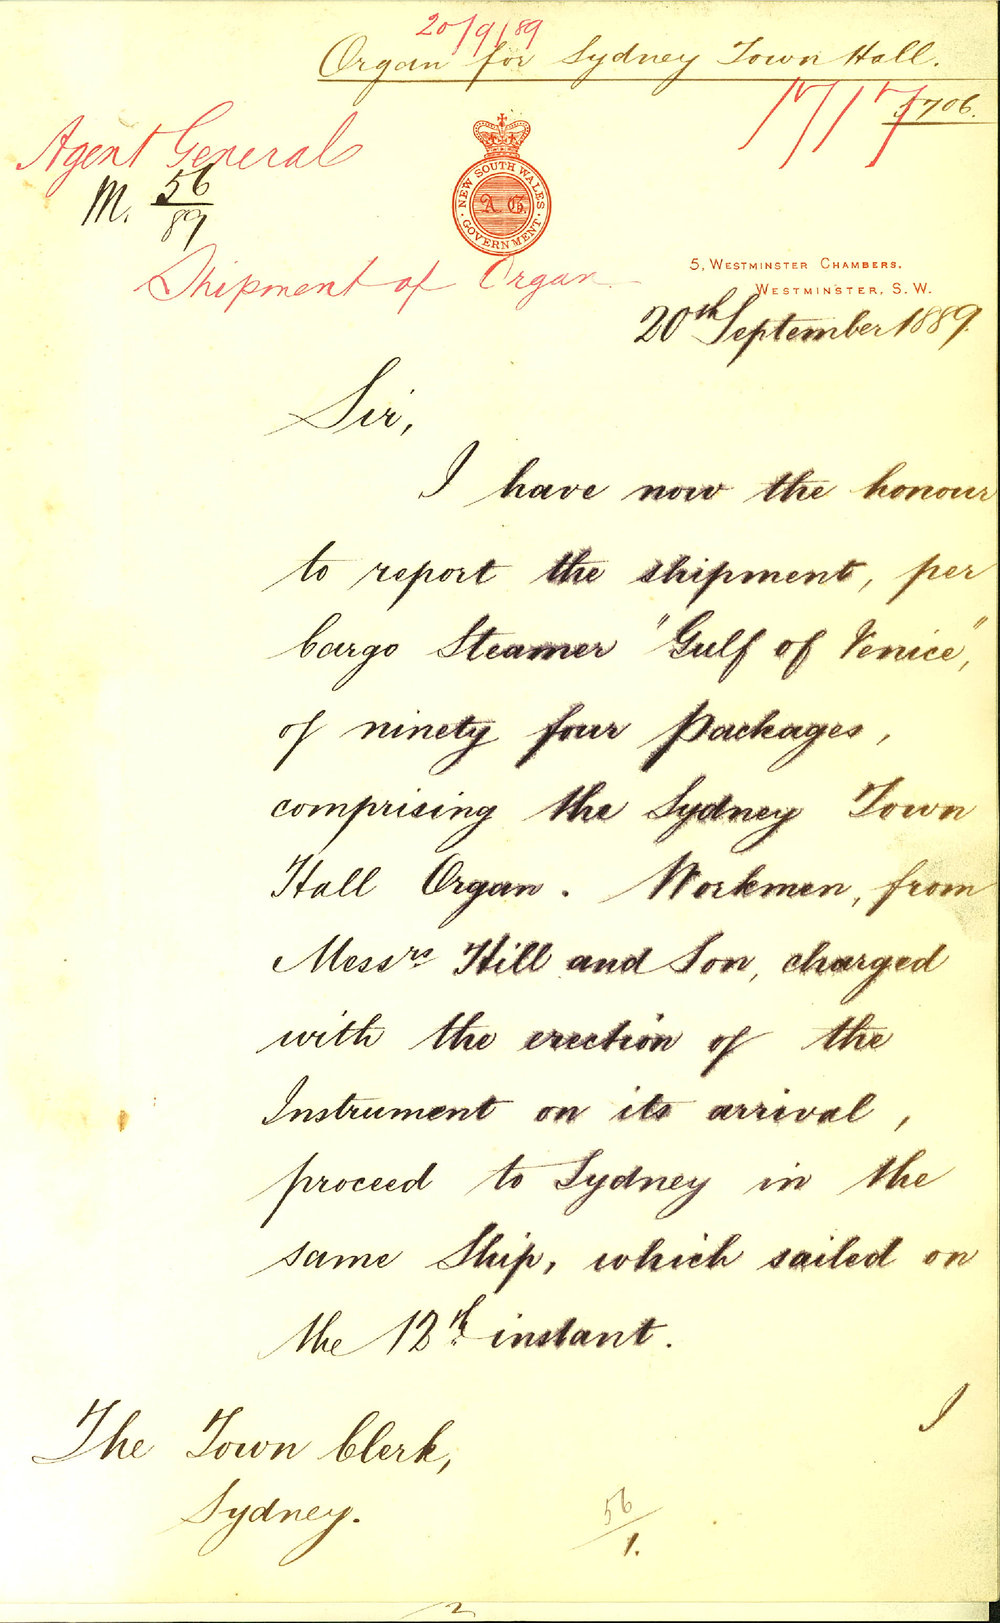 20/9/89
Organ for Sydney Town Hall.
1717
5706.
Agent General
M. 56/89
NEW SOUTH WALES
A.G.
GOVERNMENT
Shipment of Organ
5, WESTMINSTER CHAMBERS,
WESTMINSTER, S.W.
20th September 1889.
Sir,
I have now the honour
to report the shipment, per
Cargo Steamer "Gulf of Venice",
of ninety four packages,
comprising the Sydney Town
Hall Organ. Workmen, from
Messrs Hill and Son, charged
with the erection of the
Instrument on its arrival,
proceed to Sydney in the
same Ship, which sailed on
the 12th instant.
I
The Town Clerk,
Sydney.
56/1.
2